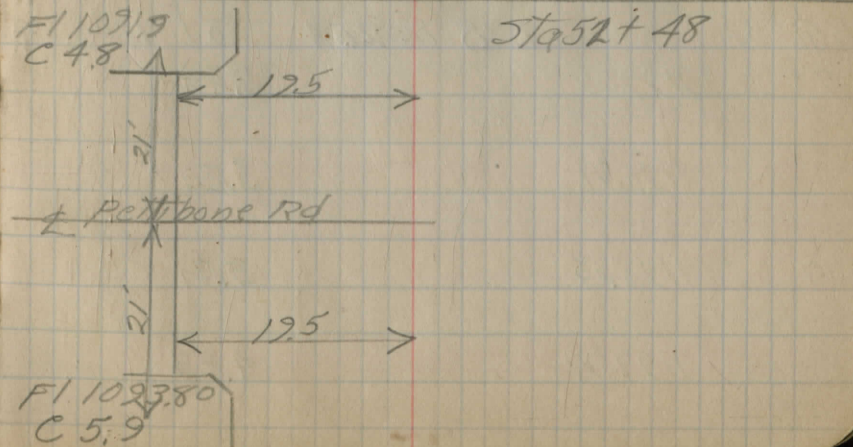 Fl 1091.9
C 4.8
Sta 52 + 48
19.5
21'
℄ Pettibone Rd
21'
19.5
Fl 1093.80
C 5.9